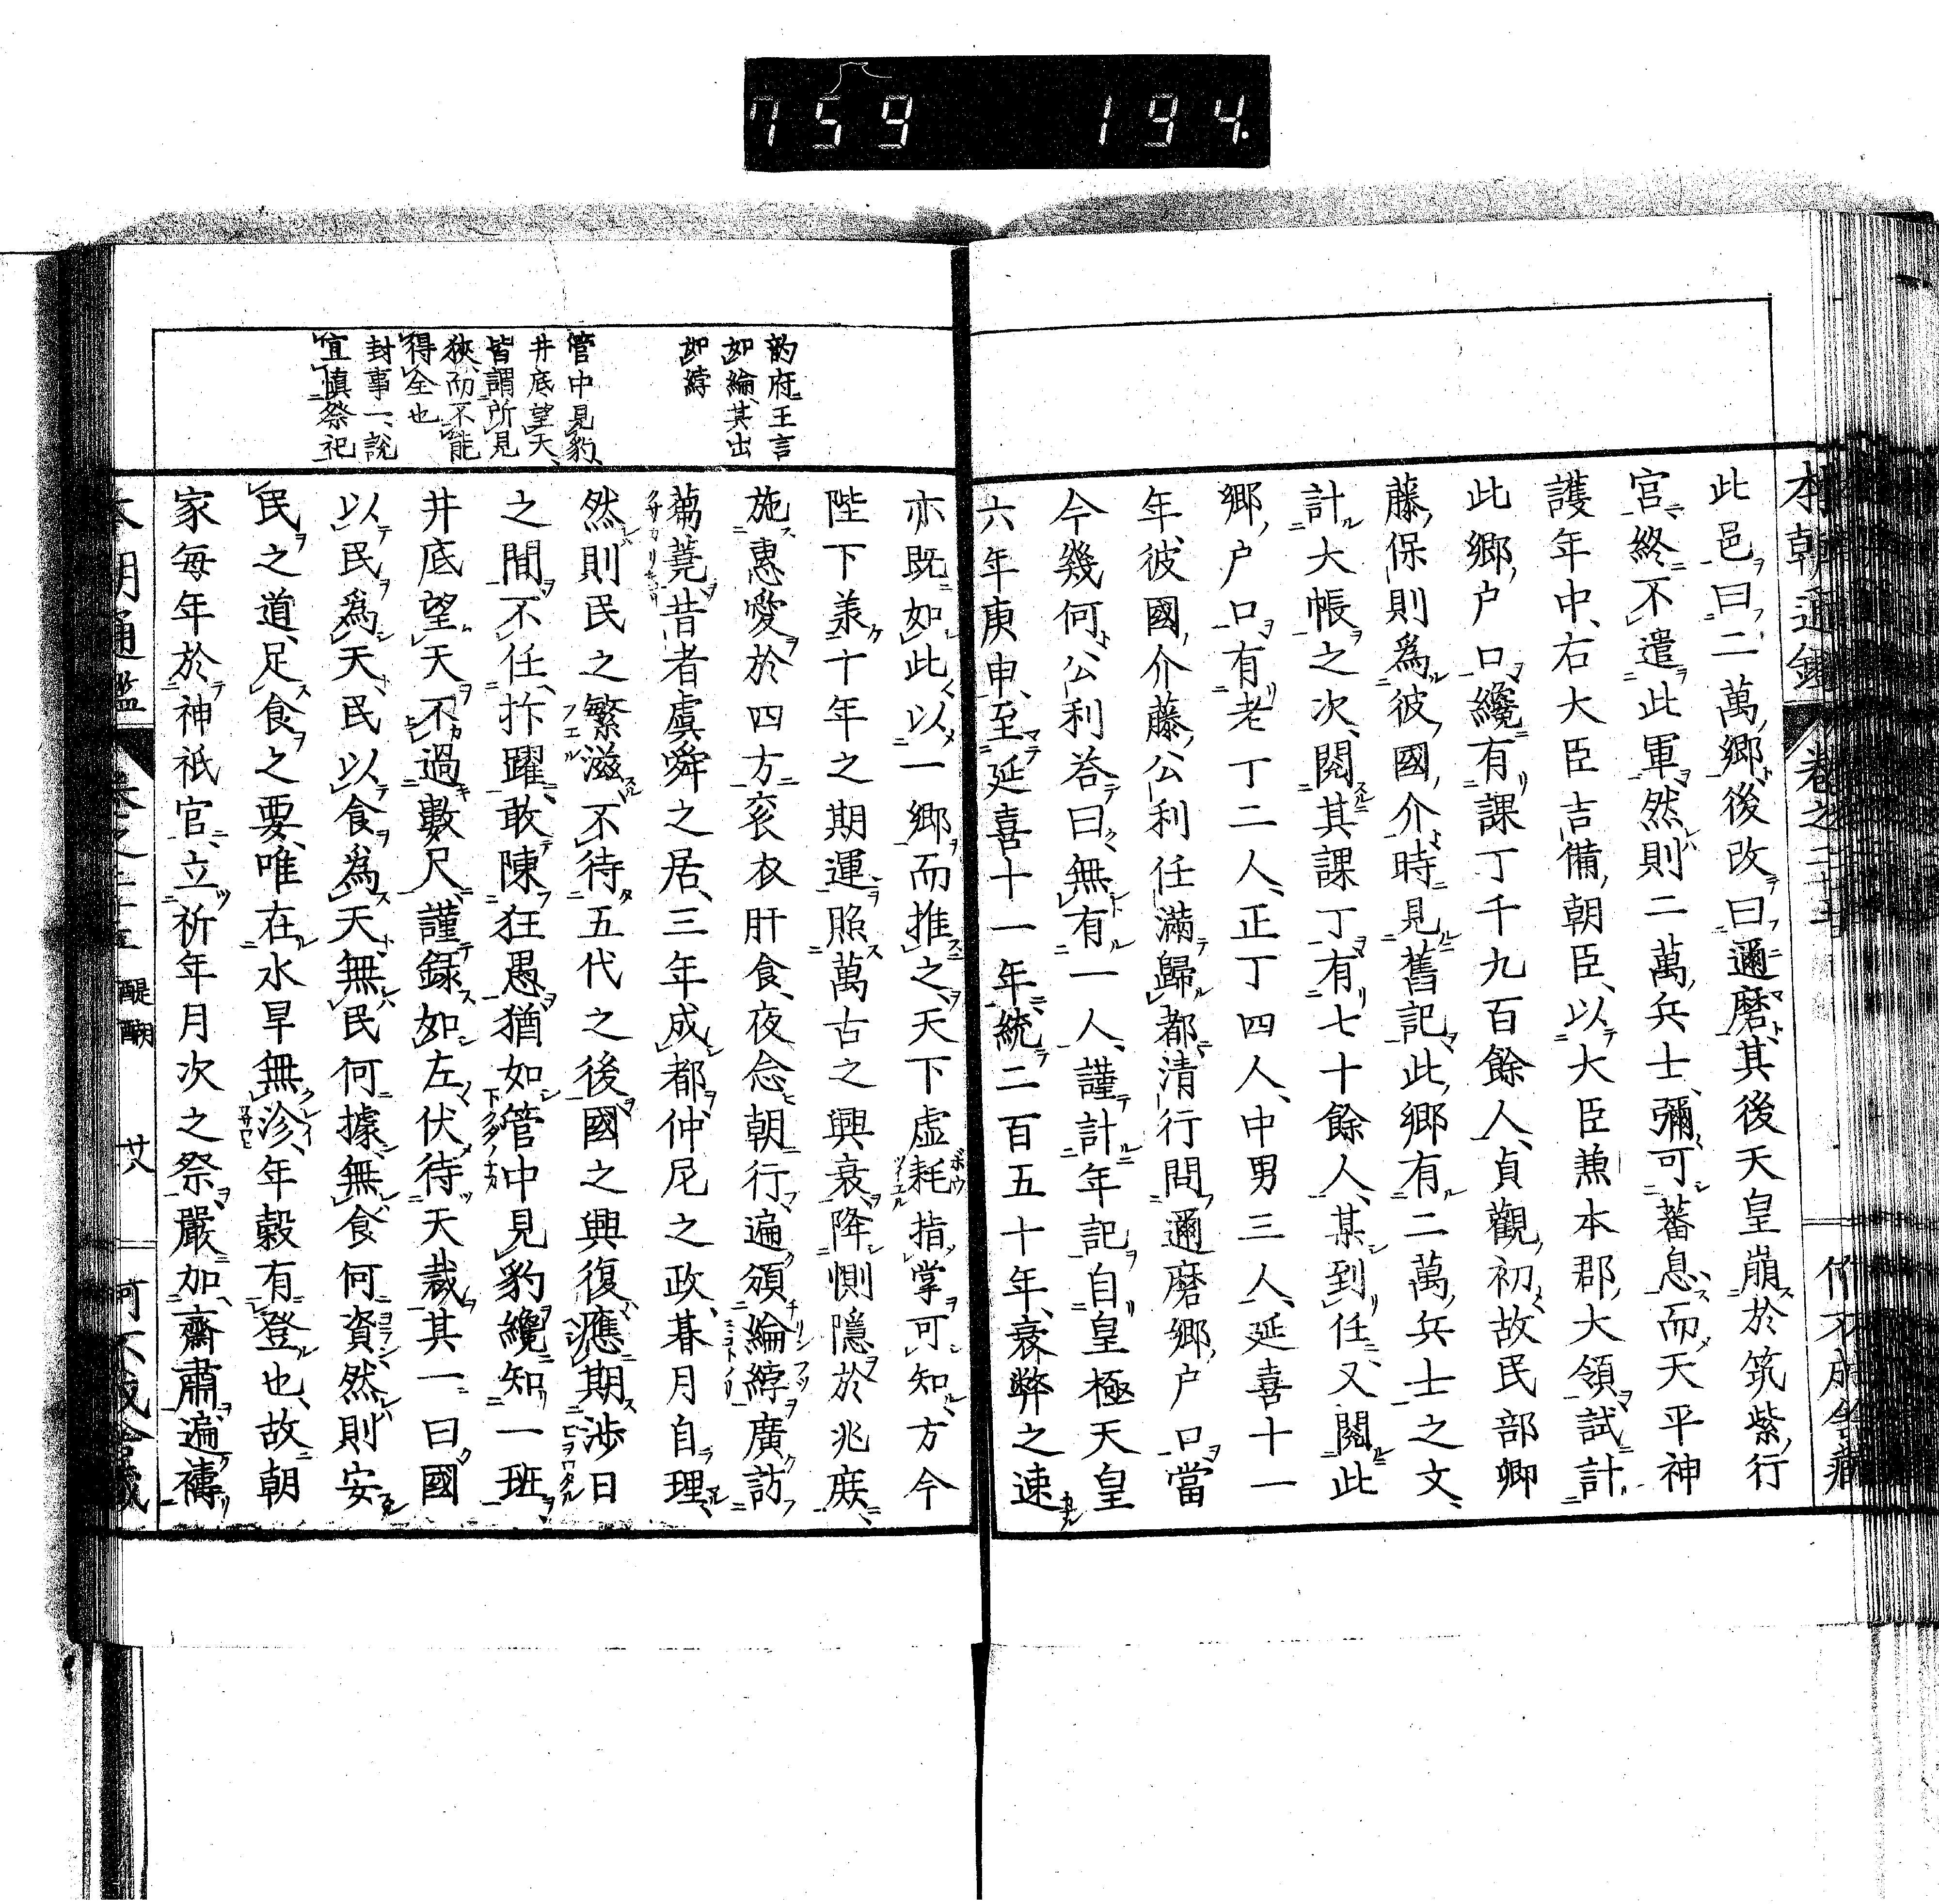 759 194.
本朝通鑑 卷之二十五
此邑曰二萬鄉後改曰邇磨其後天皇崩於筑紫行
宮終不遣此軍然則二萬兵士彌可蕃息而天平神
護年中右大臣吉備朝臣以大臣兼本郡大領試計
此鄉戶口纔有課丁千九百餘人貞觀初故民部卿
藤保則爲彼國介時見舊記此鄉有二萬兵士之文
計大帳之次閱其課丁有七十餘人某到任又閱此
鄉戶口有老丁二人正丁四人中男三人延喜十一
年彼國介藤公利任滿歸都淸行問邇磨鄉戶口當
今幾何公利荅曰無有一人謹計年記自皇極天皇
六年庚申至延喜十一年統二百五十年衰弊之速
亦既如此以一鄉而推之天下虛耗指掌可知方今
陛下羕十年之期運照萬古之興衰降惻隱於兆庶
施惠愛於四方衮衣肝食夜念朝行遍頒綸綍廣訪
蒭蕘昔者虞舜之居三年成都仲尼之政朞月自理
然則民之繁滋不待五代之後國之興復應期涉日
之間不任抃躍敢陳狂愚猶如管中見豹纔知一班
井底望天不過數尺謹錄如左伏待天裁其一曰國
以民爲天民以食爲天無民何據無食何資然則安
民之道足食之要唯在水旱無沴年穀有登也故朝
家每年於神祇官立祈年月次之祭嚴加齋肅遍禱
韵府王言
如綸其出
如綍
管中見豹
井底望天
皆謂所見
狹而不能
得全也
封事一說
宜愼祭祀
本朝通鑑 卷之二十五 醍醐 廿八